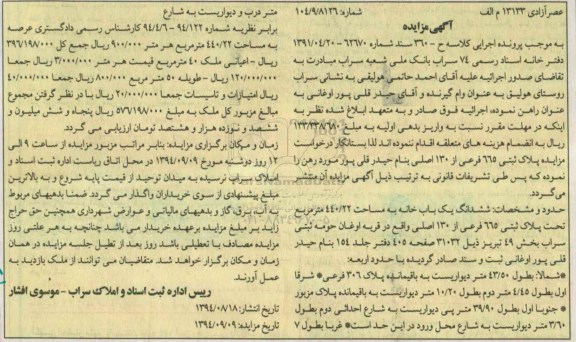 عصرآزادی ۱۳۱۳۳ م الف
شماره: ۱۰۴/۹/۸۱۲۶
آگهی مزایده
به موجب پرونده اجرایی کلاسه ح - ۳۶۰ سند شماره ۶۲۶۷۰ - ۱۳۹۱/۰۴/۲۰
دفتر خانه اسناد رسمی ۷۴ سراب بانک ملی شعبه سراب مبادرت به
تقاضای صدور اجرائیه علیه آقای احمد حاتمی هولیقی به نشانی سراب
روستای هولیق به عنوان وام گیرنده و آقای حیدر قلی پور اوغانی به
عنوان راهن نموده، اجرائیه فوق صادر و به متعهد ابلاغ شده نظر به
اینکه در مهلت مقرر نسبت به واریز بدهی اولیه به مبلغ
ریال به انضمام هزینه های متعلقه اقدام ننموده اند لذا بستانکار درخواست
مزایده پلاک ثبتی ۶۶۵ فرعی از ۱۳۰ اصلی بنام حیدر قلی پور مورد رهن را
نموده که پس طی تشریفات قانونی به ترتیب ذیل آگهی مزایده آن منتشر
می گردد.
حدود و مشخصات: ششدانگ یک باب خانه به مساحت ۴۴۰/۲۲ مترمربع
تحت پلاک ثبتی ۶۶۵ فرعی از ۱۳۰ اصلی واقع در قریه اوغان حومه ثبتی
سراب بخش ۴۹ تبریز ذیل ۳۱۰۳۲ صفحه ۴۰۵ دفتر جلد ۱۵۴ بنام حیدر
قلی پور اوغانی ثبت و سند صادر گردیده با حدود اربعه:
*شمالا: بطول ۴۳/۵۰ متر دیواریست به باقیمانده پلاک ۳۰۶ فرعی* شرقا
اول بطول ۴/۴۵ متر دوم بطول ۱۰/۲۰ متر دیواریست به باقیمانده پلاک مزبور
* جنوبا اول بطول ۳۹/۹۰ متر پی دیواریست به شارع احداثی دوم بطول
۳/۶۰ متر دیواریست به شارع محل ورود در این حد است* غربا بطول ۷
متر درب و دیواریست به شارع
برابر نظریه شماره ۹۴/۱۲۲ - ۹۴/۴/۶ کارشناس رسمی دادگستری عرصه
به مساحت ۴۴۰/۲۲ مترمربع هر متر ۹۰۰/۰۰۰ ریال جمع کل ۳۹۶/۱۹۸/۰۰۰
ریال - اعیانی ملک ۴۰ مترمربع قیمت هر متر ۳/۰۰۰/۰۰۰ ریال جمعا
۱۲۰/۰۰۰/۰۰۰ ریال - طویله ۵۰ متر مربع ۸۰۰/۰۰۰ ریال جمعا ۴۰/۰۰۰/۰۰۰
ریال امتیازات و تاسیسات جمعا ۲۰/۰۰۰/۰۰۰ ریال با در نظر گرفتن مجموع
مبالغ مزبور کل ملک به مبلغ ۵۷۶/۱۹۸/۰۰۰ ریال پنجاه و شش میلیون و
ششصد و نوزده هزار و هشتصد تومان ارزیابی می گردد.
زمان و مکان برگزاری مزایده: بنابر مراتب مزبور مزایده از ساعت ۹ الی
۱۲ روز دوشنبه مورخ ۱۳۹۴/۰۹/۰۹ در محل اتاق ریاست اداره ثبت اسناد و
املاک سراب نرسیده به میدان توحید از قیمت پایه شروع و به بالاترین
مبلغ پیشنهادی از سوی خریداران واگذار می گردد ضمنا بدهیهای مربوط
به آب، برق، گاز و بدهیهای مالیاتی و عوارض شهرداری همچنین حق حراج
زاید بر مبلغ مزایده برعهده خریدار می باشد چنانچه به هر علتی روز
مزایده مصادف با تعطیلی باشد روز بعد از تعطیل جلسه مزایده در همان
زمان و مکان برگزار خواهد شد. متقاضیان می توانند از ملک بازدید به
عمل آورند.
رییس اداره ثبت اسناد و املاک سراب - موسوی افشار
تاریخ انتشار: ۱۳۹۴/۰۸/۱۸
تاریخ مزایده: ۱۳۹۴/۰۹/۰۹